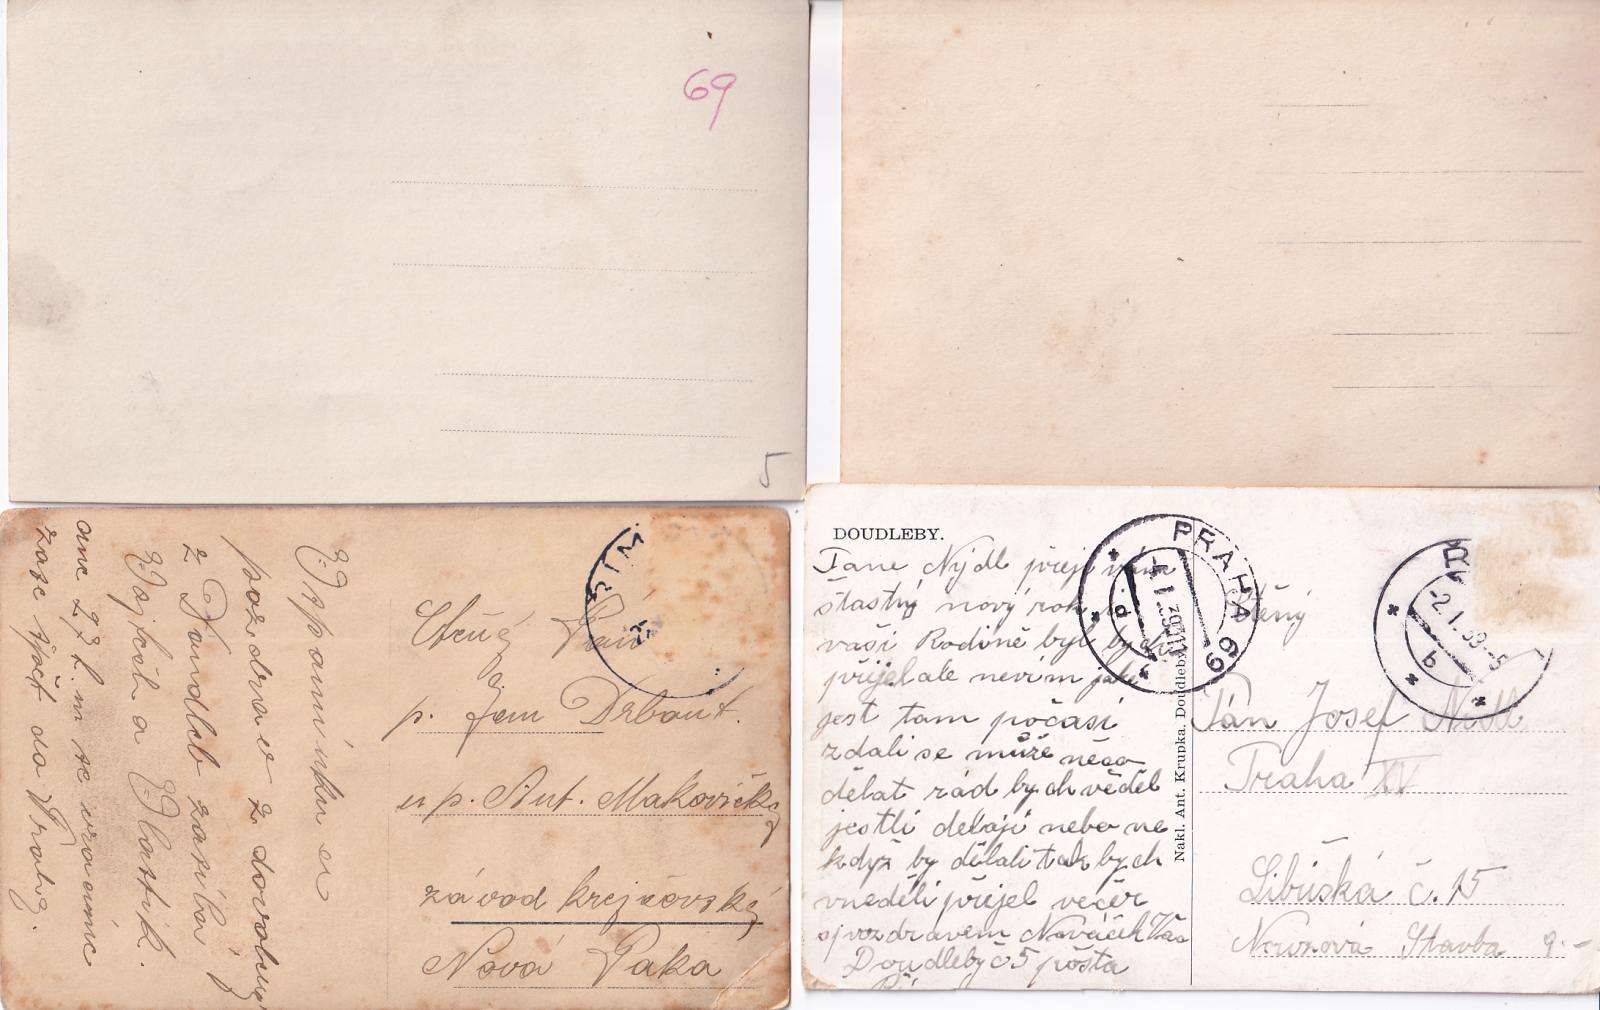 69
5
Vzpomínku a
pozdrav z dovolený
z Doudleb zasílá
Vojtěch a Vlastík.
dne 27. t. m se vrátíme
zase zpět do Prahy.
Ctěný Pan
p. Jem Drbout.
u p. Ant. Makovičky
závod krejčovský
Nová Paka
DOUDLEBY.
Pane Nýdl přeji vám
štastný nový rok
vaší Rodině byl bych
přijel ale nevím jaké
jest tam počasí
zdali se může něco
dělat rád bych věděl
jestli dělají nebo ne
když by dělali tak bych
vneděli přijel večer
spozdravem Nováček Vác
Doudleby č 5 pošta
Nakl. Ant. Krupka, Doudleby
PRAHA 69
Ctěný
Pán Josef
Praha XV
Libušká č. 15
Stavba
9.-